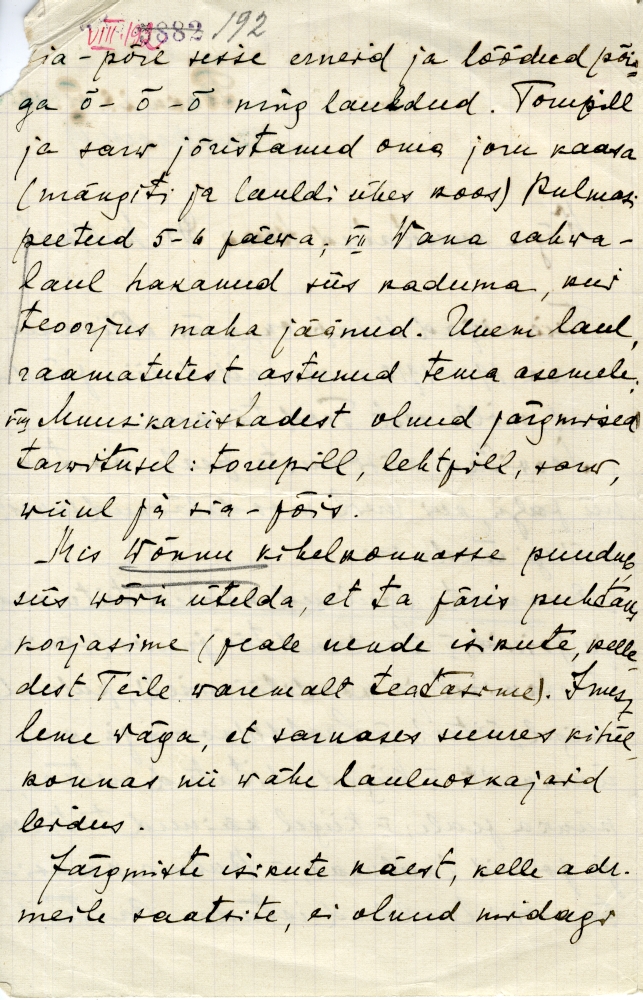 VIII 192 8882 /192
sia-põie sisse erneid ja löödud põi-
ga õ-õ-õ ning lauldud. Torupill
ja sarw jõristanud oma joru kaasa
(mängiti ja lauldi ühes koos) Pulmasi
peetud 5-6 päewa; VII Wana rahwa-
laul hakanud siis kaduma, kui
teoorjus maha jäänud. Uuem laul,
raamatutest astunud tema asemele.
VIII Muusikariistadest olnud järgmised
tarwitusel: torupill, lehtpill, sarw,
wiiul ja sia-põis.
Mis Wõnnu kihelkonnasse puudub,
siis wõin ütelda, et ta päris puhtaks
korjasime (peale nende isikute, kelle-
dest Teile waremalt teatasime). Imes-
leme wäga, et sarnases suures kihel-
konnas nii wähe lauluoskajaid
leidus.
Järgmiste isikute käest, kelle adr.
meile saatsite, ei olnud midagi